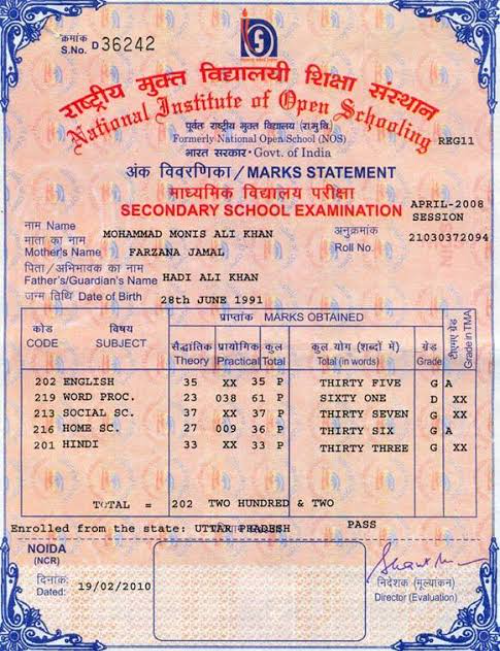 क्रमांक
S.No. D 36242
राष्ट्रीय मुक्त विद्यालयी शिक्षा संस्थान
National Institute of Open Schooling
पूर्वतः राष्ट्रीय मुक्त विद्यालय (रा.मु.वि.)
Formerly National Open School (NOS)
REG11
भारत सरकार • Govt. of India
अंक विवरणिका / MARKS STATEMENT
माध्यमिक विद्यालय परीक्षा
SECONDARY SCHOOL EXAMINATION
APRIL-2008
SESSION
नाम Name MOHAMMAD MONIS ALI KHAN
अनुक्रमांक
Roll No. 21030372094
माता का नाम
Mother's Name FARZANA JAMAL
पिता/अभिभावक का नाम
Father's/Guardian's Name HADI ALI KHAN
जन्म तिथि Date of Birth 28th JUNE 1991
प्राप्तांक MARKS OBTAINED
कोड विषय सैद्धांतिक प्रायोगिक कुल कुल योग (शब्दों में) ग्रेड टीएमए ग्रेड
CODE SUBJECT Theory Practical Total Total (in words) Grade Grade in TMA
202 ENGLISH 35 XX 35 P THIRTY FIVE G A
219 WORD PROC. 23 038 61 P SIXTY ONE D XX
213 SOCIAL SC. 37 XX 37 P THIRTY SEVEN G XX
216 HOME SC. 27 009 36 P THIRTY SIX G A
201 HINDI 33 XX 33 P THIRTY THREE G XX
TOTAL = 202 TWO HUNDRED & TWO
Enrolled from the state: UTTAR PRADESH PASS
NOIDA
(NCR)
दिनांक:
Dated: 19/02/2010
निदेशक (मूल्यांकन)
Director (Evaluation)